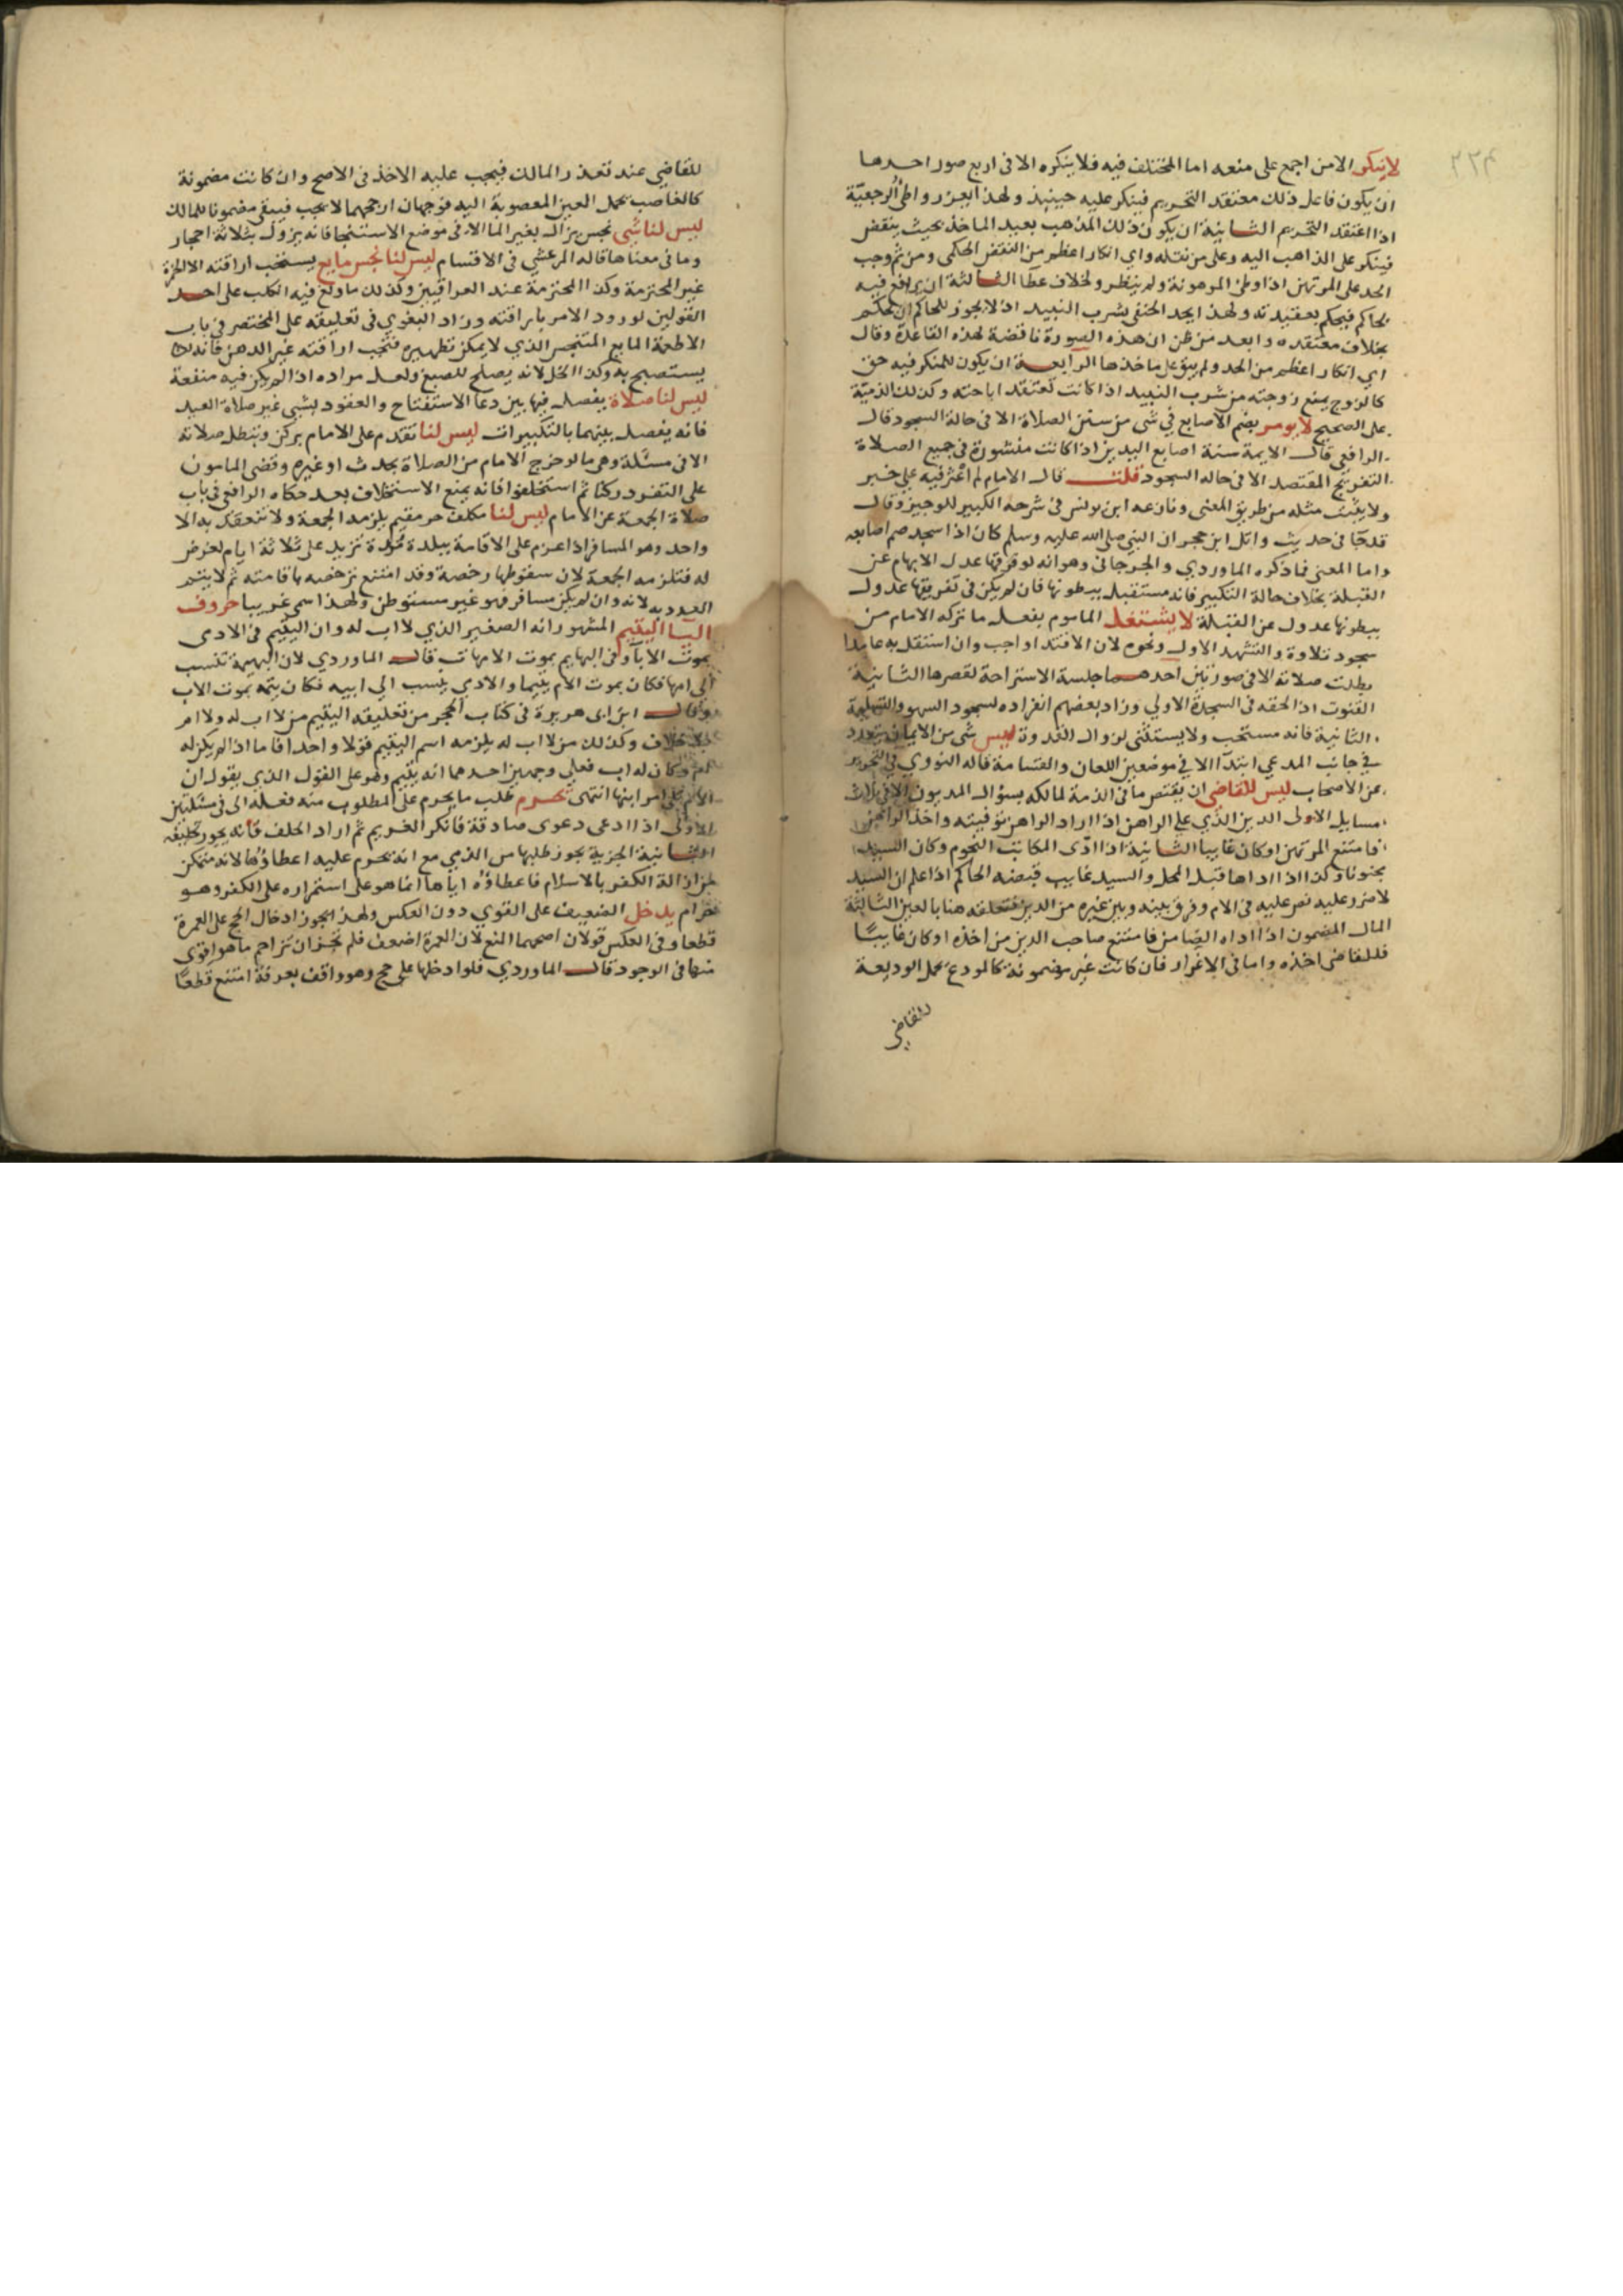 ٢٢٤
لا ينكر الا من اجمع على منعه اما المختلف فيه فلا ينكره الا فى اربع صور احدها
ان يكون فاعل ذلك معتقد التحريم فينكر عليه حينيذ ولهذا يعزر واطئ الرجعية
اذا اعتقد التحريم الثانية ان يكون ذلك المذهب بعيد الماخذ بحيث ينقض
فينكر على الذاهب اليه وعلى من نقله واي انكار اعظم من النقض الحكمى ومن ثم وجب
الحد على المرتهن اذا وطئ المرهونة ولم ينظر ولخلاف عطا الثالثة ان يرافع فيه
لحاكم فيحكم بعقيدته ولهذا يحد الحنفى بشرب النبيد اذ لا يجوز للحاكم ان يحكم
بخلاف معتقده وابعد من ظن ان هذه الصورة ناقضة لهذه القاعدة وقال
اي انكار اعظم من الحد ولم يبق على ماخذها الرابعة ان يكون للمنكر فيه حق
كالزوج يمنع زوجته من شرب النبيد اذا كانت تعتقد اباحته وكذلك الذمية
على الصحيح لا يومر بضم الاصابع في شى من سنن الصلاة الا فى حالة السجود قال
الرافعى قال الايمة سنة اصابع اليدين اذا كانت منشورة فى جميع الصلاة
التفريج المقتصد الا فى حاله السجود قلت قال الامام لم اعثر فيه على خبر
ولا يثبت مثله من طريق المعنى ونازعه ابن يونس فى شرحه الكبير للوجيز وقال
قد جا فى حديث وائل ابن حجر ان النبي صلى الله عليه وسلم كان اذا سجد ضم اصابعه
واما المعنى فما ذكره الماوردي والجرجانى وهو انه لو فرقها عدل الابهام عن
القبلة بخلاف حالة التكبير فانه مستقبل ببطونها فان لم يكن فى تفريقها عدول
ببطونها عدول عن القبلة لا يشتغل الماموم بفعل ما تركه الامام من
سجود تلاوة والتشهد الاول ونحوه لان الاقتدا واجب وان استقل به عامدا
بطلت صلاته الا فى صورتين احدهما جلسة الاستراحة لقصرها الثانية
القنوت اذا لحقه فى السجدة الاولي وزاد بعضهم انفراده لسجود السهو والتسليمة
الثانية فانه مستحب ولا يستثنى لزوال القدوة ليس شى من الايمان يتعدد
في جانب المدعى ابتدآ الا في موضعين اللعان والقسامة قاله النووي في التحرير
عن الاصحاب ليس للقاضى ان يقتص ما فى الذمة لمالكه بسوال المديون الا فى ثلاث
مسايل الاولى الدين الذي على الراهن اذا اراد الراهن توفيته واخذ الراهن
فامتنع المرتهن او كان غايبا الثانية اذا ادى المكاتب النجوم وكان السيد
مجنونا وكذا اذا اداها قبل المحل والسيد غايب قبضه الحاكم اذا علم ان السيد
لا ضرر عليه نص عليه فى الام وفرق بينه وبين غيره من الدين فتعلقه هنا بالعين الثالثة
المال المضمون اذا اداه الضامن فامتنع صاحب الدين من اخذه او كان غايبًا
فللقاضى اخذه واما فى الاغرار فان كانت غير مضمونة كالمودع يحمل الوديعة
للقاضي
للقاضي عند تعذر المالك فيجب عليه الاخذ فى الاصح وان كانت مضمونة
كالغاصب يحمل العين المغصوبة اليه فوجهان ارجحهما لا يجب فيبقى مضمونا للمالك
ليس لنا شى نجس يزال بغير الما الا فى موضع الاستنجا فانه يزول بثلاثة احجار
وما فى معناها قاله المرعشي فى الاقسام ليس لنا نجس مايع يستحب اراقته الا الخمرة
غير المحترمة وكذا المحترمة عند العراقيين وكذلك ما ولغ فيه الكلب على احد
القولين لورود الامر باراقته وزاد البغوي فى تعليقه على المختصر فى باب
الاطعمة المايع المتنجس الذي لا يمكن تطهيره فتجب اراقته غير الدهن فانه
يستصبح به وكذا الخل لانه يصلح للصبغ ولعل مراده اذا لم يكن فيه منفعة
ليس لنا صلاة يفصل فيها بين دعا الاستفتاح والعقود بشى غير صلاة العيد
فانه يفصل بينهما بالتكبيرات ليس لنا تقدم على الامام بركن وتبطل صلاته
الا فى مسئلة وهى ما لو خرج الامام من الصلاة بحدث او غيره وقضى المامون
على التفرد ركنا ثم استخلفوا فانه يمنع الاستخلاف بعد حكاه الرافعى فى باب
صلاة الجمعة عن الامام ليس لنا مكلف حر مقيم يلزمه الجمعة ولا تنعقد به الا
واحد وهو المسافر اذا عزم على الاقامة ببلدة مدة تزيد على ثلاثة ايام لغرض
له فتلزمه الجمعة لان سقوطها رخصة وقد امتنع ترخصه باقامته ثم لا يتم
العدد به لانه وان لم يكن مسافر فهو غير مستوطن ولهذا سمى غريبا حروف
اليا اليتيم المشهور انه الصغير الذي لا اب له وان اليتيم فى الادمى
بموت الابآ وفى البهايم بموت الامهات قال الماوردي لان البهيمة تنسب
الى امها فكان بموت الام يتيما والادمي ينسب الي ابيه فكان يتمه بموت الاب
وقال ابن ابى هريرة فى كتاب الحجر من تعليقه اليتيم من لا اب له ولا ام
بلا خلاف وكذلك من لا اب له يلزمه اسم اليتيم قولا واحدا فاما اذا لم يكن له
ام وكان له اب فعلى وجهين احدهما انه يتيم وهو على القول الذي يقول ان
الام تلى امر ابنها انتهى يحرم طلب ما يحرم على المطلوب منه فعله الى فى مسئلتين
الاولى اذا ادعى دعوى صادقة فانكر الغريم ثم اراد الحلف فانه يجوز تحليفه
الثانية الجزية يجوز طلبها من الذمي مع انه يحرم عليه اعطاؤها لانه متمكن
من ازالة الكفر بالاسلام فاعطاؤه اياها انما هو على استمراره على الكفر وهو
حرام يدخل الضعيف على القوي دون العكس ولهذا يجوز ادخال الحج على العمرة
قطعا وفى العكس قولان اصحهما المنع لان العمرة اضعف فلم يجز ان تزاحم ما هو اقوى
منها فى الوجود قال الماوردي فلو ادخلها على حج وهو واقف بعرفة امتنع قطعًا